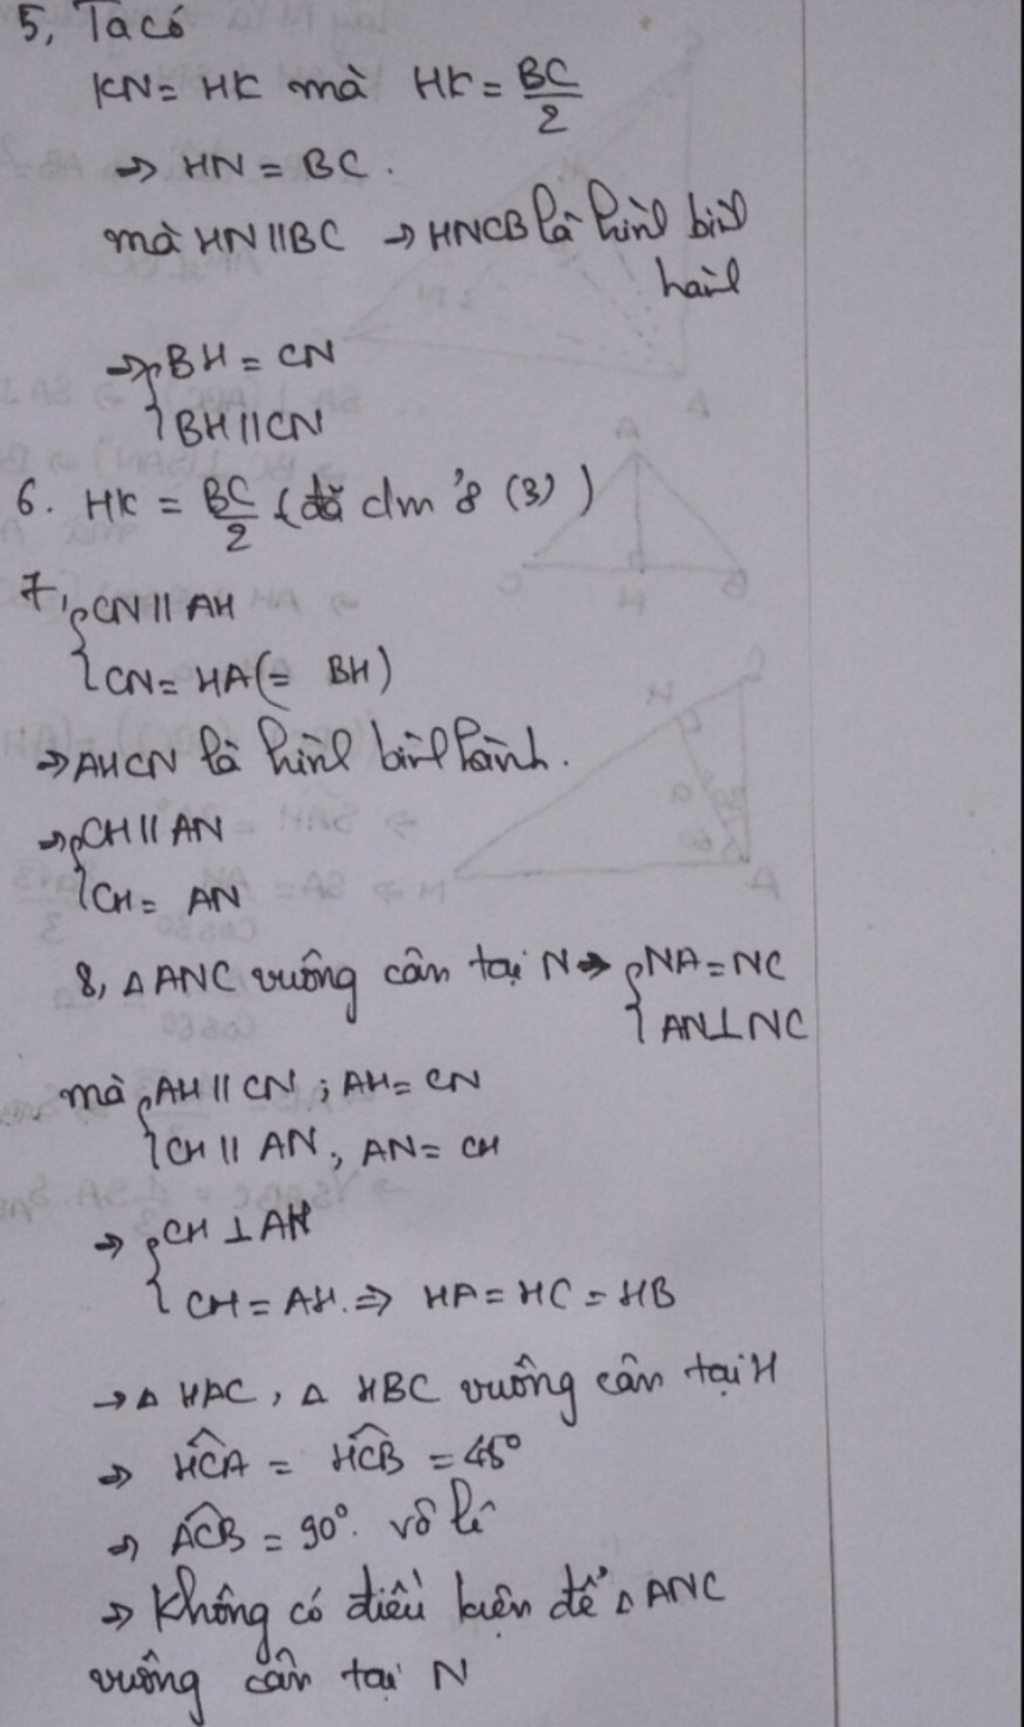 5, Ta có
KN = HK mà HK = BC/2
→ HN = BC.
mà HN // BC → HNCB là hình bình
hành
→ { BH = CN
{ BH // CN
6. HK = BC/2 (đã cm ở (3))
7, { CN // AH
{ CN = HA (= BH)
→ AHCN là hình bình hành.
→ { CH // AN
{ CH = AN
8, Δ ANC vuông cân tại N → { NA = NC
{ AN ⊥ NC
mà { AH // CN ; AH = CN
{ CH // AN ; AN = CH
→ { CH ⊥ AH
{ CH = AH. ⇒ HA = HC = HB
→ Δ HAC, Δ HBC vuông cân tại H
⇒ HĈA = HĈB = 45°
⇒ AĈB = 90°. vô lí
⇒ Không có điều kiện để Δ ANC
vuông cân tại N